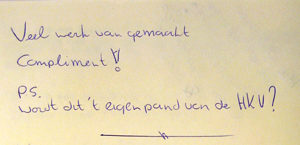 Veel werk van gemaakt
Compliment!
PS.
wordt dit 't eigen pand van de HKV?